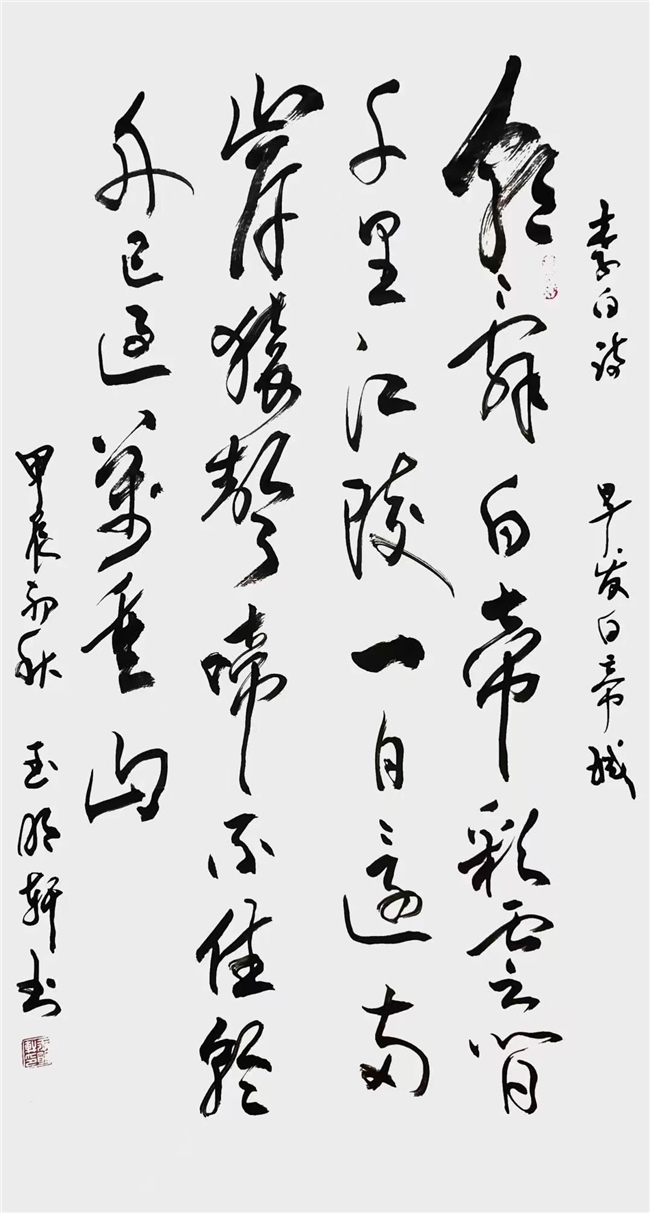 李白诗 早发白帝城
朝辞白帝彩雲間
千里江陵一日還两
岸猿聲啼不住輕
舟已過萬重山
甲辰初秋 玉明轩书